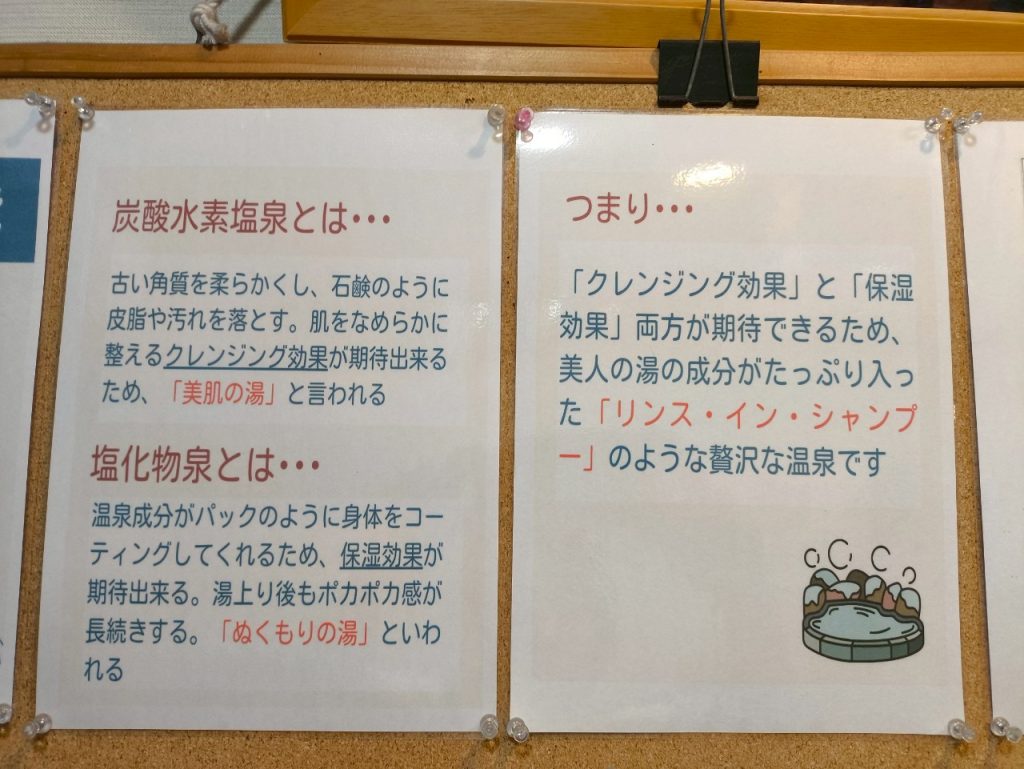 炭酸水素塩泉とは・・・
古い角質を柔らかくし、石鹸のように
皮脂や汚れを落とす。肌をなめらかに
整えるクレンジング効果が期待出来る
ため、「美肌の湯」と言われる
塩化物泉とは・・・
温泉成分がパックのように身体をコー
ティングしてくれるため、保湿効果が
期待出来る。湯上り後もポカポカ感が
長続きする。「ぬくもりの湯」といわ
れる
つまり・・・
「クレンジング効果」と「保湿
効果」両方が期待できるため、
美人の湯の成分がたっぷり入っ
た「リンス・イン・シャンプ
ー」のような贅沢な温泉です